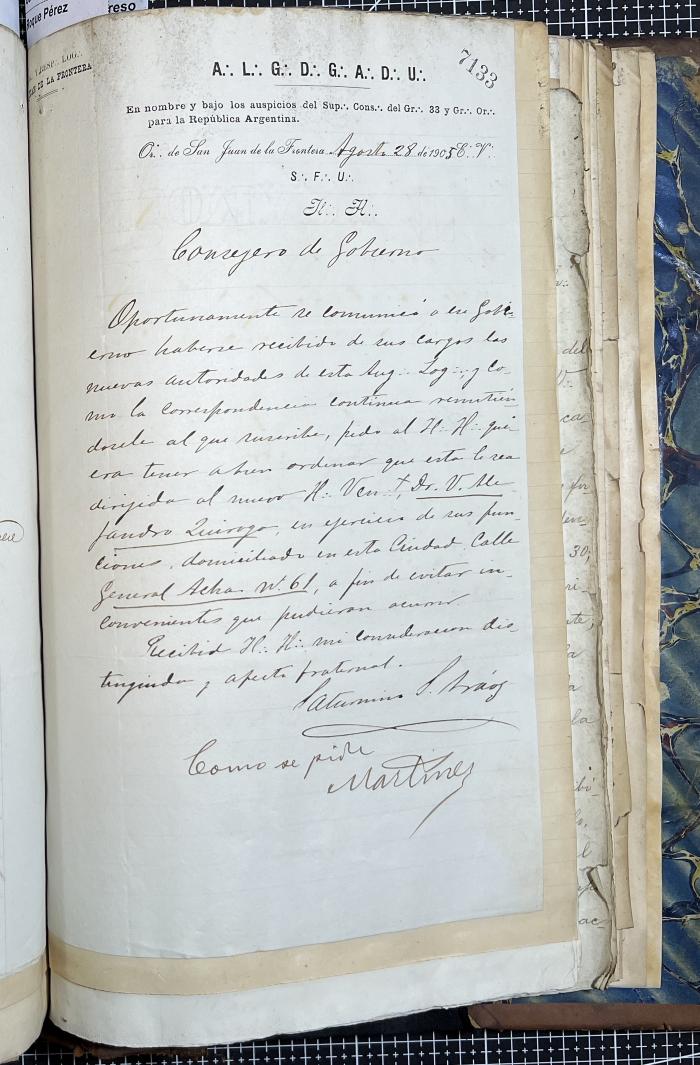 Roque Pérez
reso
RESP.·. LOG.·.
JUAN DE LA FRONTERA
7133
A.·. L.·. G.·. D.·. G.·. A.·. D.·. U.·.
En nombre y bajo los auspicios del Sup.·. Cons.·. del Gr.·. 33 y Gr.·. Or.·.
para la República Argentina.
Or.·. de San Juan de la Frontera Agosto 28 de 1905 E.·. V.·.
S.·. F.·. U.·.
H.·. H.·.
Consejero de Gobierno
Oportunamente se comunicó a ese Gobi-
erno haberse recibido de sus cargos las
nuevas autoridades de esta Aug.·. Log.·., y co-
mo la correspondencia continua remitién-
dosele al que suscribe, pido al H.·. H.·. qui-
era tener a bien ordenar que esta le sea
dirijida al nuevo H.·. Ven.·., Dr. V. Ale-
jandro Quiroga, en ejercicio de sus fun-
ciones, domiciliado en esta Ciudad, Calle
General Acha Nº 61, a fin de evitar in-
convenientes que pudieran ocurrir.
Recibid H.·. H.·. mi consideracion dis-
tinguida y afecto fraternal.
Saturnino S. Aráoz
Como se pide
Martinez
del
V.·.
ca
e
30;
te,
la
a
la
l
ac-